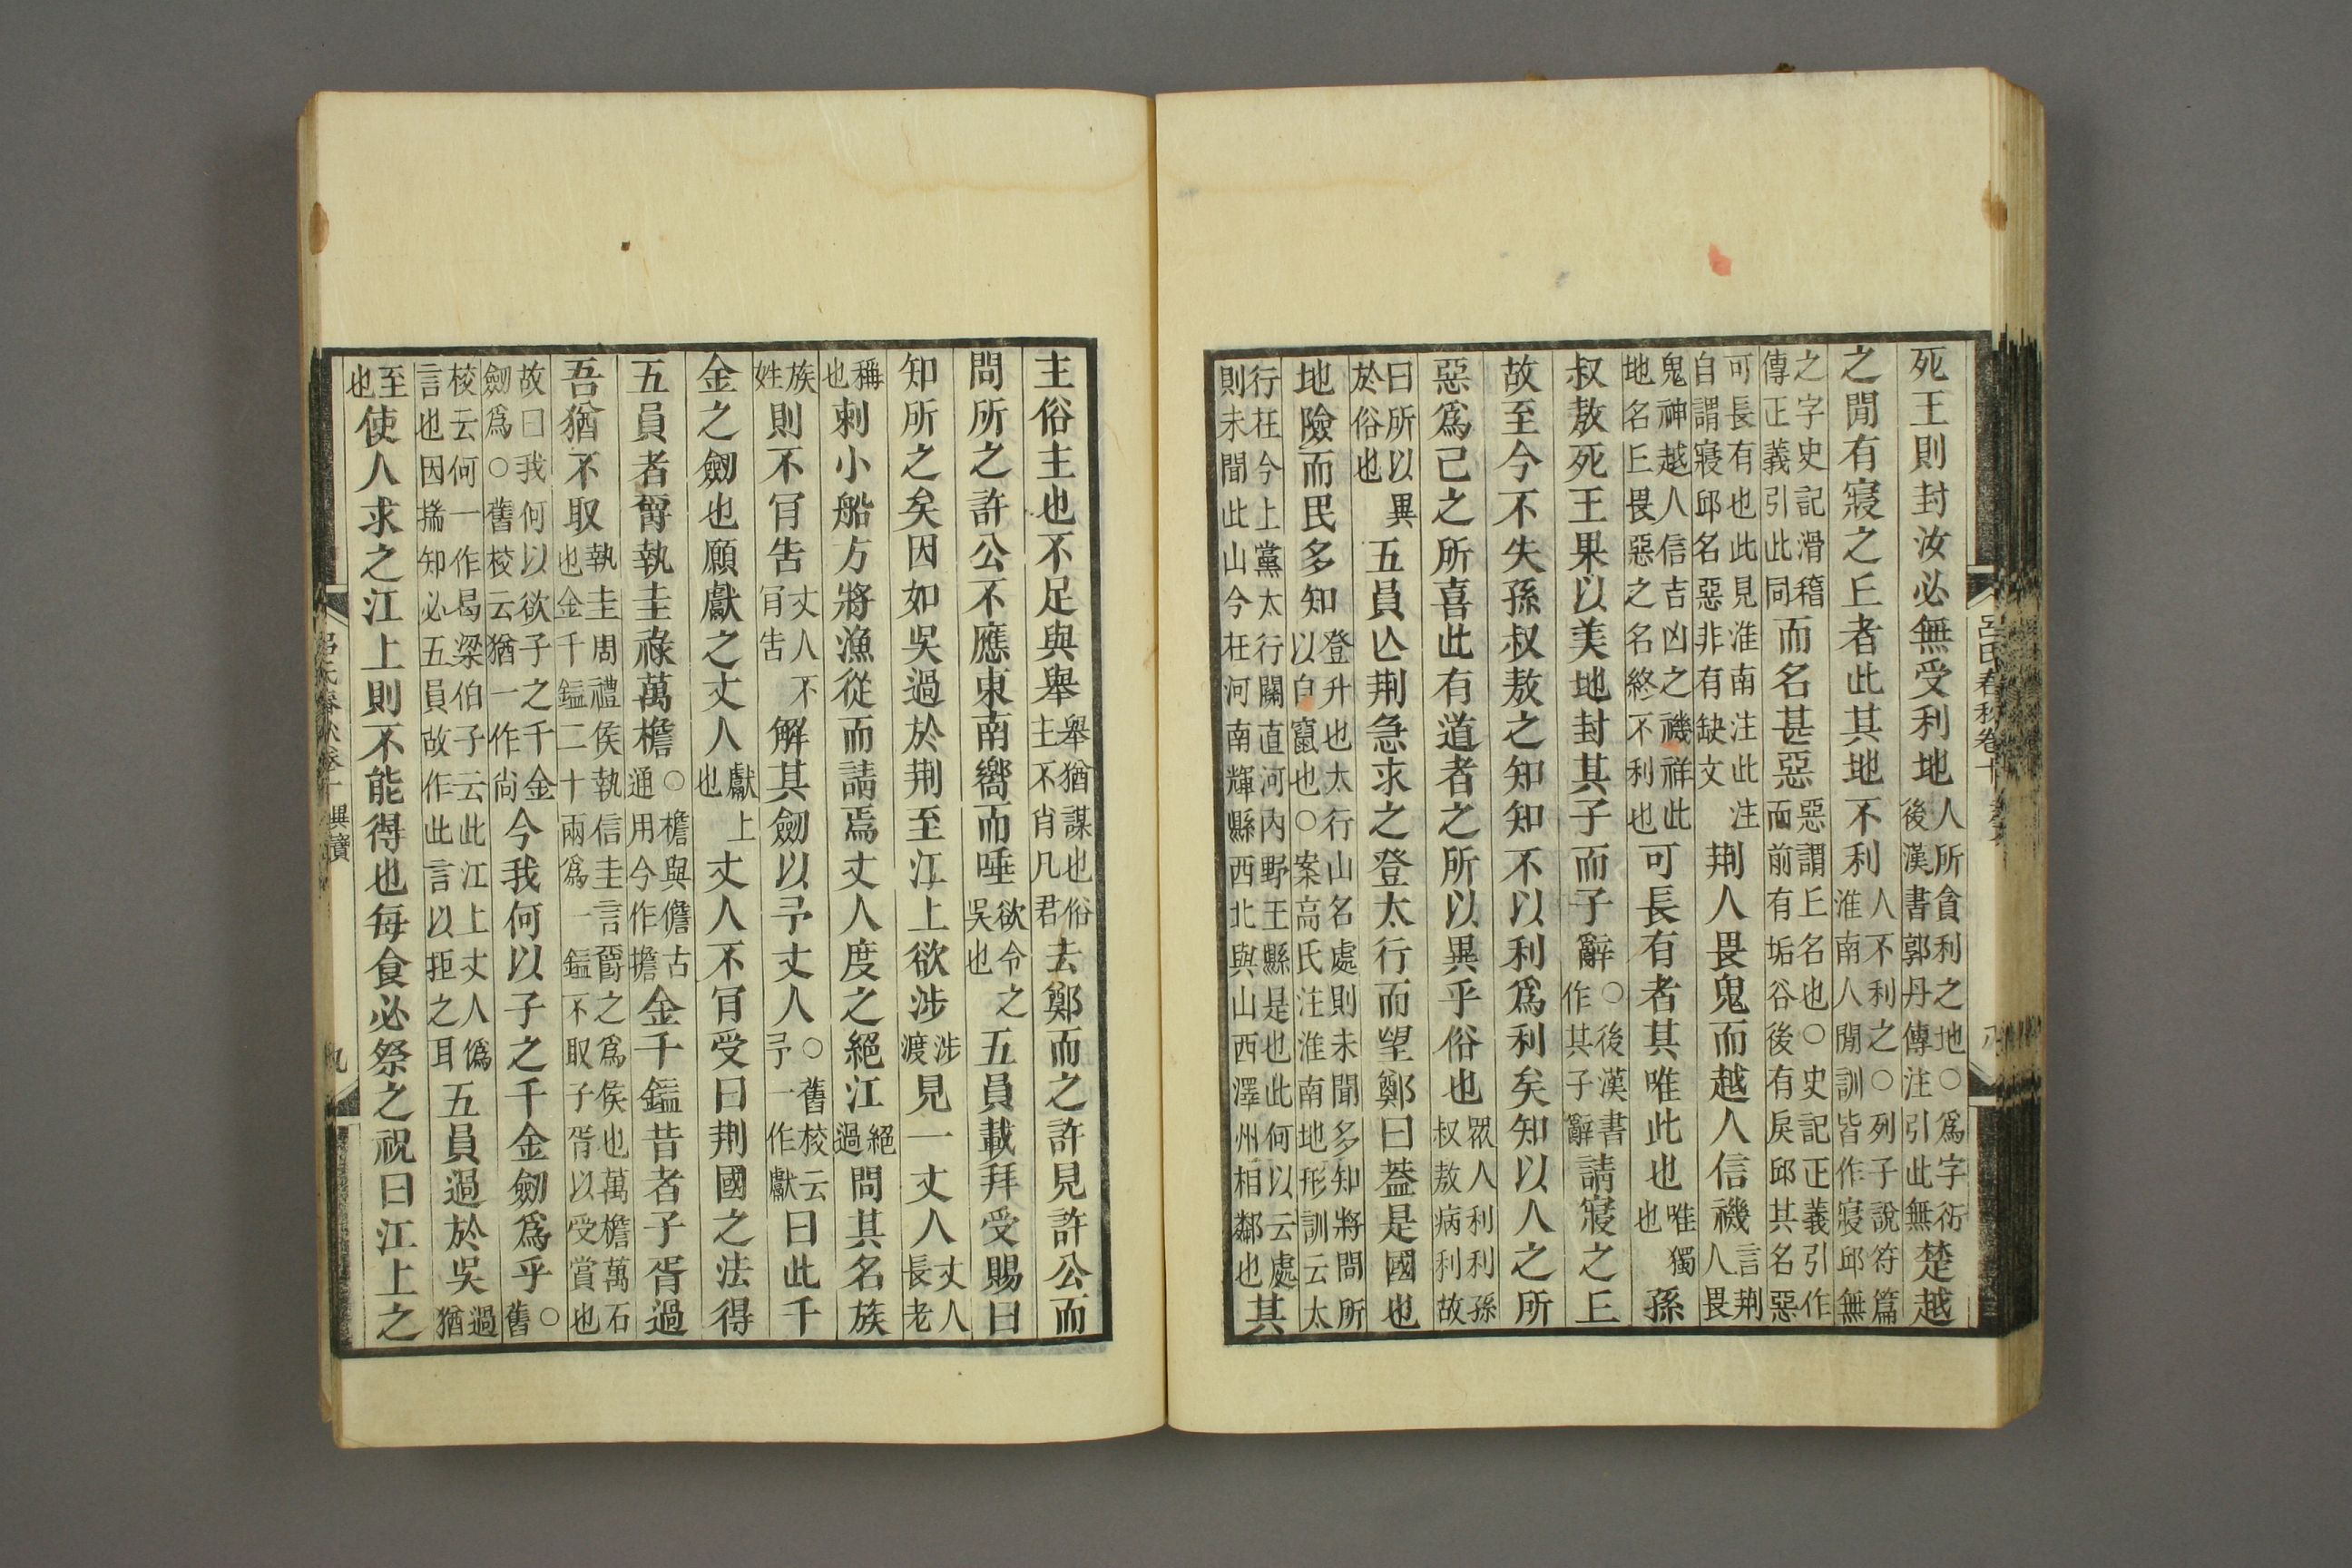 呂氏春秋卷十
八
死王則封汝必無受利地人所貪利之地○爲字衍後漢書郭丹傳注引此無楚越
之閒有寢之丘者此其地不利人不利之○列子說符篇淮南人閒訓皆作寢邱無
之字史記滑稽傳正義引此同而名甚惡惡謂丘名也○史記正義引作而前有垢谷後有戾邱其名惡
可長有也此見淮南注此注自謂寢邱名惡非有缺文荆人畏鬼而越人信禨言荆人畏
鬼神越人信吉凶之禨祥此地名丘畏惡之名終不利也可長有者其唯此也唯獨也孫
叔敖死王果以美地封其子而子辭○後漢書作其子辭請寢之丘
故至今不失孫叔敖之知知不以利爲利矣知以人之所
惡爲己之所喜此有道者之所以異乎俗也眾人利利孫叔敖病利故
曰所以異於俗也五員亾荆急求之登太行而望鄭曰葢是國也
地險而民多知登升也太行山名處則未聞多知將問所以自竄也○案高氏注淮南地形訓云太
行在今上黨太行關直河內野王縣是也此何以云處則未聞此山今在河南輝縣西北與山西澤州相鄰也其
主俗主也不足與舉舉猶謀也俗主不肖凡君去鄭而之許見許公而
問所之許公不應東南嚮而唾欲令之吳也五員載拜受賜曰
知所之矣因如吳過於荆至江上欲涉涉渡見一丈人丈人長老
稱也刺小船方將漁從而請焉丈人度之絕江絕過問其名族
族姓則不肎告丈人不肎告解其劒以予丈人○舊校云予一作獻曰此千
金之劒也願獻之丈人獻上也丈人不肎受曰荆國之法得
五員者爵執圭祿萬檐○檐與儋古通用今作擔金千鎰昔者子胥過
吾猶不取執圭周禮侯執信圭言爵之爲侯也萬檐萬石也金千鎰二十兩爲一鎰不取子胥以受賞也
故曰我何以欲子之千金劒爲○舊校云猶一作尚今我何以子之千金劒爲乎○舊
校云何一作曷梁伯子云此江上丈人僞言也因揣知必五員故作此言以拒之耳五員過於吳過猶
至也使人求之江上則不能得也每食必祭之祝曰江上之
呂氏春秋卷十 異寶
九